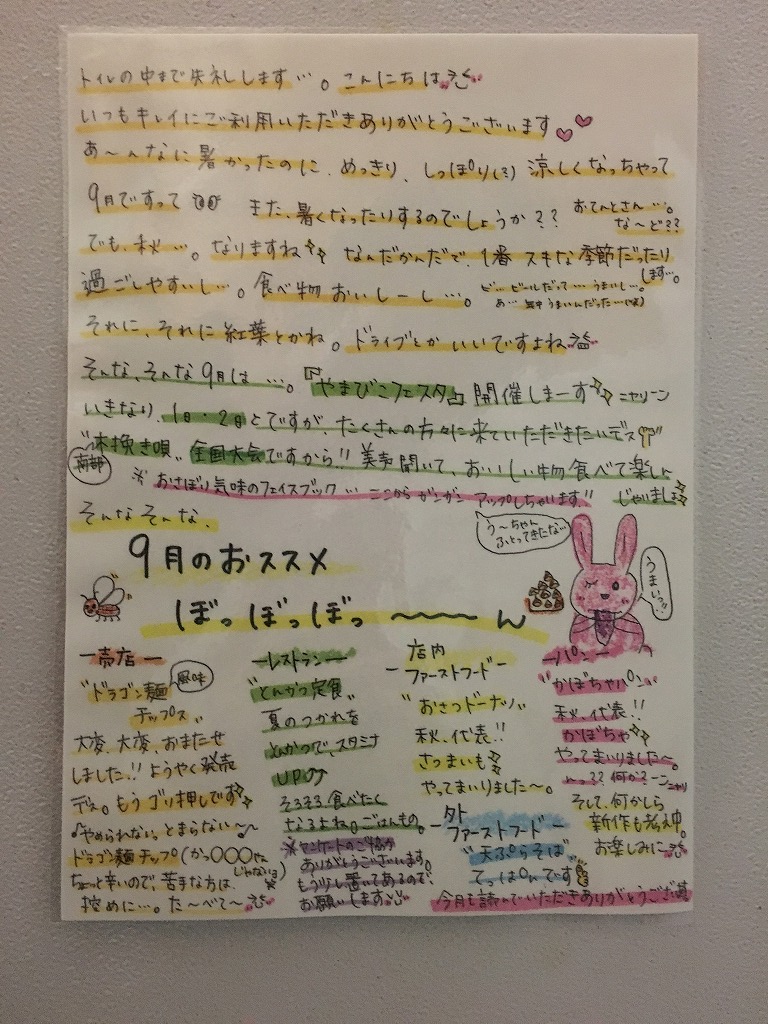 トイレの中まで失礼します…。こんにちは
いつもキレイにご利用いただきありがとうございます
あ〜んなに暑かったのに、めっきり、しっぽり(?)涼しくなっちゃって
9月ですって また、暑くなったりするのでしょうか?? おてんとさん…。
な〜ど??
でも、秋…。なりますね なんだかんだで、1番スキな季節だったり
します…。
過ごしやすいし…。食べ物おいしーし…。 ビ…ビールだって…うまいし…。
あ…年中うまいんだった…(笑)
それに、それに紅葉とかね。ドライブとかいいですよね
そんな、そんな9月は…。『やまびこフェスタ』開催しまーす ニヤリーン
いきなり、1日・2日とですが、たくさんの方々に来ていただきたいデス
南部
"木挽き唄" 全国大会ですから!! 美声聞いて、おいしい物食べて楽し
じゃいましょ
※おさぼり気味のフェイスブック…ここからガンガンアップしちゃいます!!
そんなそんな、
う〜ちゃん
ふとってきたな…
うまいっ!!
9月のおススメ
ぼっぼっぼっ〜〜〜ん
ー売店ー
"ドラゴン麺 風味
チップス"
大変、大変、おまたせ
しました!! ようやく発売
デス。もうゴリ押しです
♪やめられない、とまらない〜
ドラゴン麺チップ(かっ〇〇〇せん
じゃないヨ)
ちょっと辛いので、苦手な方は
控めに…。た〜べて〜
ーレストランー
"とんかつ定食"
夏のつかれを
とんかつで、スタミナ
UP
そろそろ食べたく
なるよね。ごはんもの。
※アンケートのご協力
ありがとうございます。
もう少し置いてあるので、
お願いします
店内
ーファーストフードー
"おさつドーナツ"
秋、代表!!
さつまいも
やってまいりました〜。
外
ーファーストフードー
"天ぷらそば"
てっぱんです
ーパンー
"かぼちゃパン"
秋、代表!!
かぼちゃ
やってまいりました〜。
そして、何かしら
新作も考え中。
お楽しみに
今月も読んでいただきありがとうござ